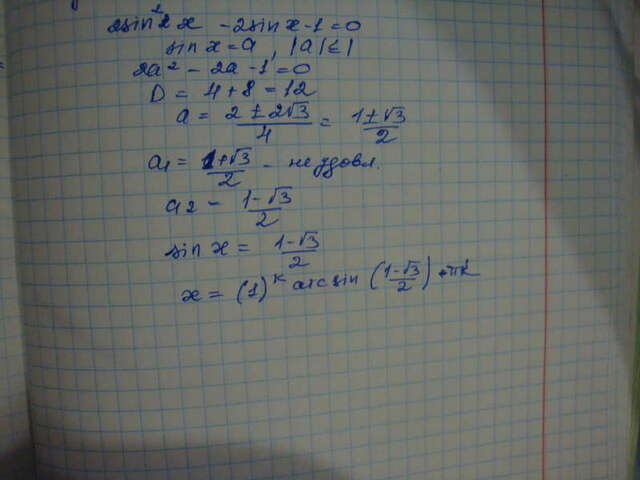 2sin²x - 2sin x - 1 = 0
sin x = a, |a| ≤ 1
2a² - 2a - 1 = 0
D = 4 + 8 = 12
a = (2 ± 2√3)/4 = (1 ± √3)/2
a₁ = (1 + √3)/2 - не удовл.
a₂ = (1 - √3)/2
sin x = (1 - √3)/2
x = (1)ᵏ arcsin ((1 - √3)/2) + πk